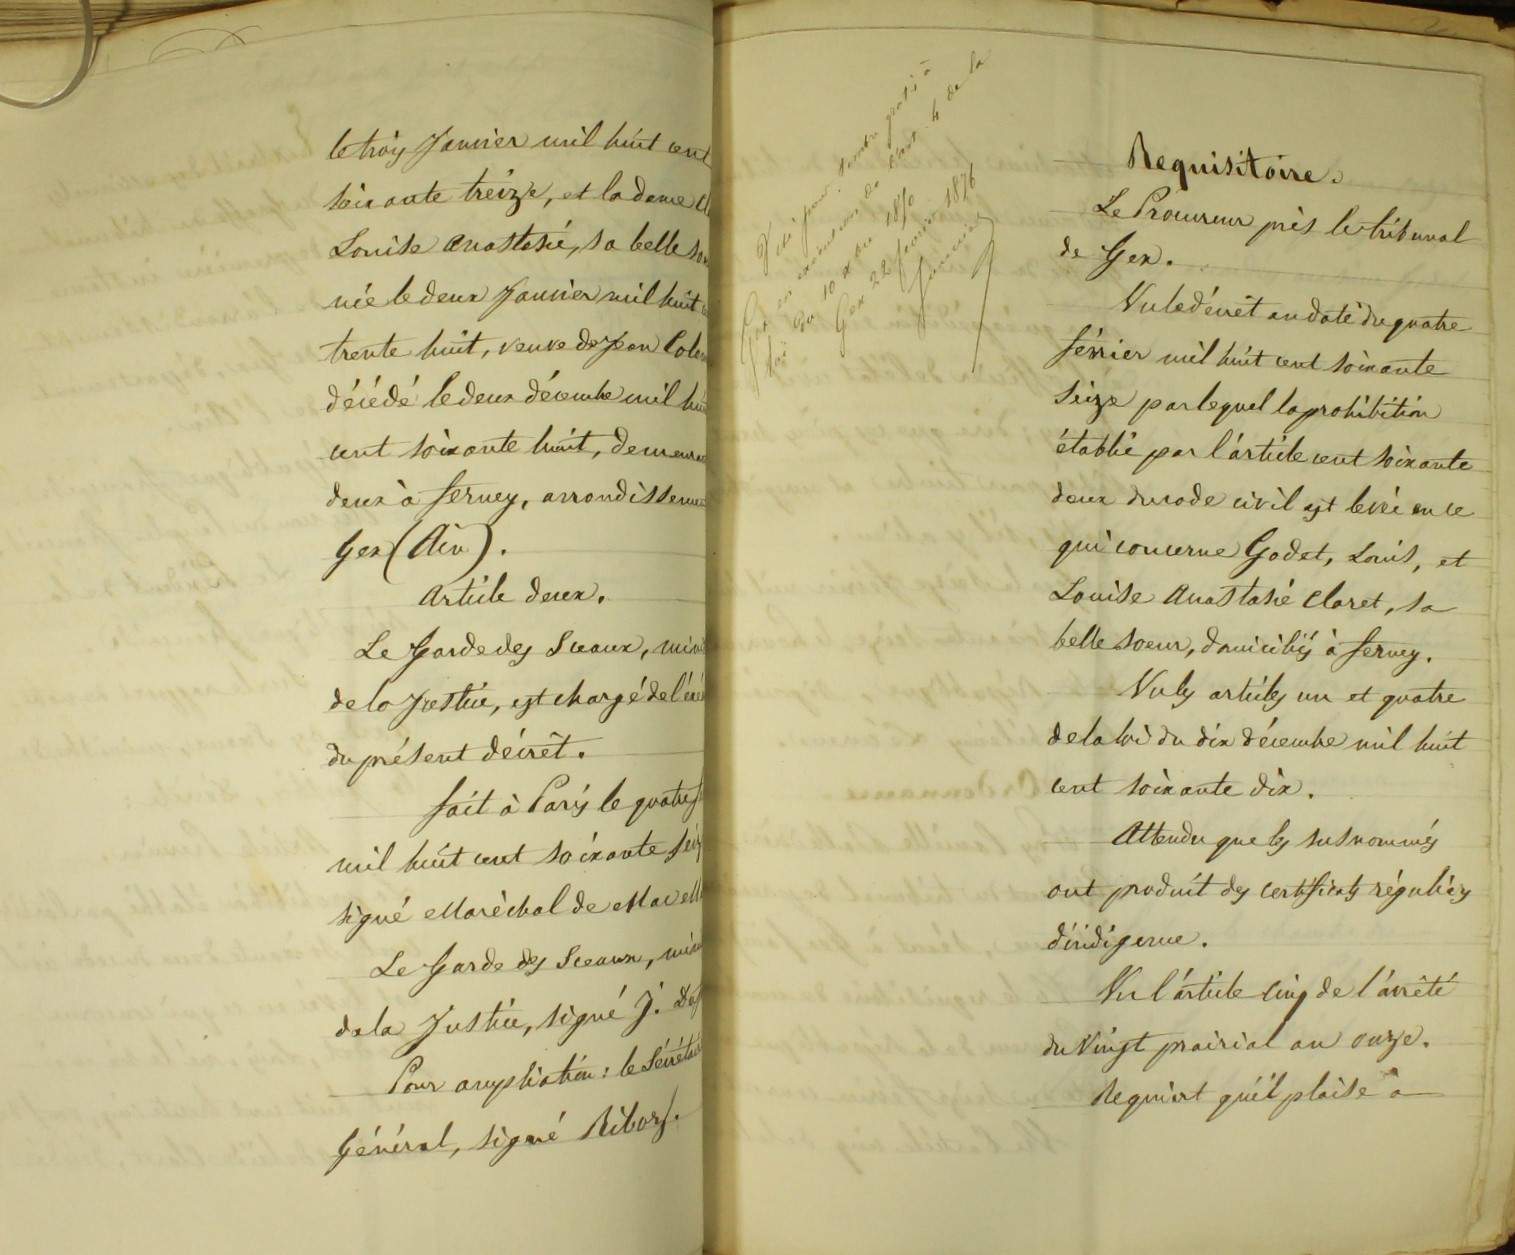 le trois Janvier mil huit cent
soixante treize, et la dame Cl
Louise Anastasie, sa belle soe
née le deux Janvier mil huit c
trente huit, veuve de Jean
décédé le deux décembre mil hui
cent soixante huit, demeura
deux à Ferney, arrondisseme
Gex (Ain).
Article deux.
Le Garde des Sceaux, mini
de la Justice, est chargé de l'éxé
du présent décrêt.
Fait à Paris le quatre f
mil huit cent soixante seiz
signé Maréchal de Mac M
Le Garde des Sceaux, mini
de la Justice, signé J. Duf
Pour ampliation: le Sécrétair
Général, signé Ribot.
Visé pour timbre gratis à
Gex en exécution de l'art. 4 de la
loi du 10 Xbre 1870
Gex 22 février 1876
Requisitoire.
Le Procureur près le tribunal
de Gex.
Vu le décrêt en date du quatre
février mil huit cent soixante
Seize par lequel la prohibition
établie par l'article cent soixante
deux du code civil est levée en ce
qui concerne Godet, Louis, et
Louise Anastasie Claret, sa
belle soeur, domiciliés à Ferney.
Vu les articles un et quatre
de la loi du dix décembre mil huit
cent soixante dix.
Attendu que les susnommés
ont produit des certificats réguliers
d'indigence.
Vu l'article cinq de l'arrêté
du vingt prairial an onze.
Requiert qu'il plaise à